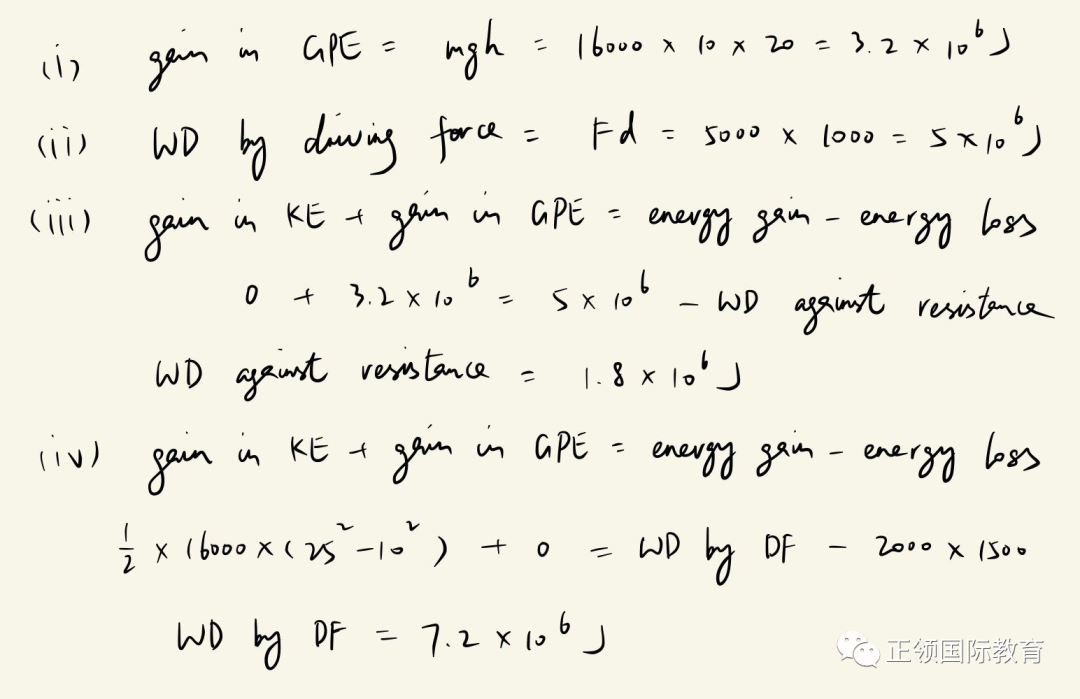 (i) gain in GPE = mgh = 16000 × 10 × 20 = 3.2 × 10⁶ J
(ii) WD by driving force = Fd = 5000 × 1000 = 5 × 10⁶ J
(iii) gain in KE + gain in GPE = energy gain - energy loss
0 + 3.2 × 10⁶ = 5 × 10⁶ - WD against resistance
WD against resistance = 1.8 × 10⁶ J
(iv) gain in KE + gain in GPE = energy gain - energy loss
1/2 × 16000 × (25² - 10²) + 0 = WD by DF - 2000 × 1500
WD by DF = 7.2 × 10⁶ J
正领国际教育